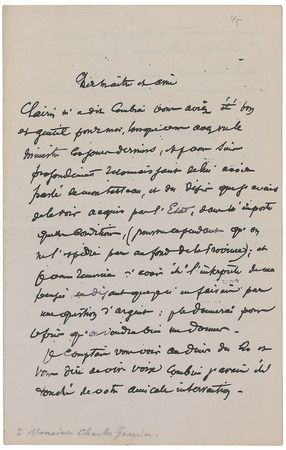 45
Cher maître et ami
Clairin m'a dit combien vous aviez été bon
et gentil pour moi, lorsque vous avez vu le
Ministre ces jours derniers, et je vous suis
profondément reconnaissant de lui avoir
parlé de mon tableau, et du désir que j'avais
de le voir acquis par l'État, dans n'importe
quelle condition, (pourvu cependant qu'on
ne l'expédie pas au fond de la Province); et
je vous remercie d'avoir été l'interprète de ma
pensée en disant que je n'en faisais pas
une question d'argent: je le donnerai pour
le prix qu'on voudra bien me donner.
Je comptais vous voir au diner du et
vous dire de vive voix combien j'avais été
touché de votre amicale intervention.
à Monsieur Charles Garnier.